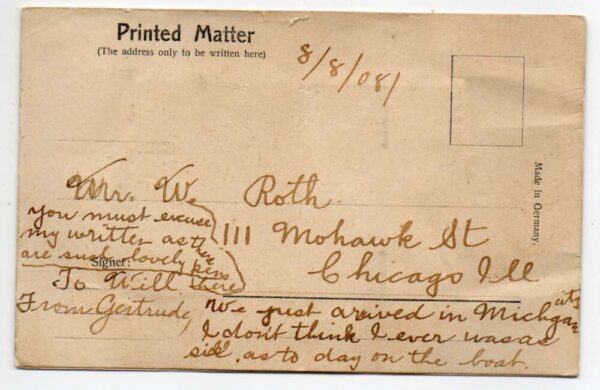 Printed Matter
(The address only to be written here)
8/8/08/
Made in Germany.
Mr. W. Roth
111 Mohawk St
Chicago Ill
you must excuse
my written as there
are such lovely pens
Signer:
To Will there
From Gertrude,
We just arived in Michgan
I dont think I ever was as
sick as to day on the boat.